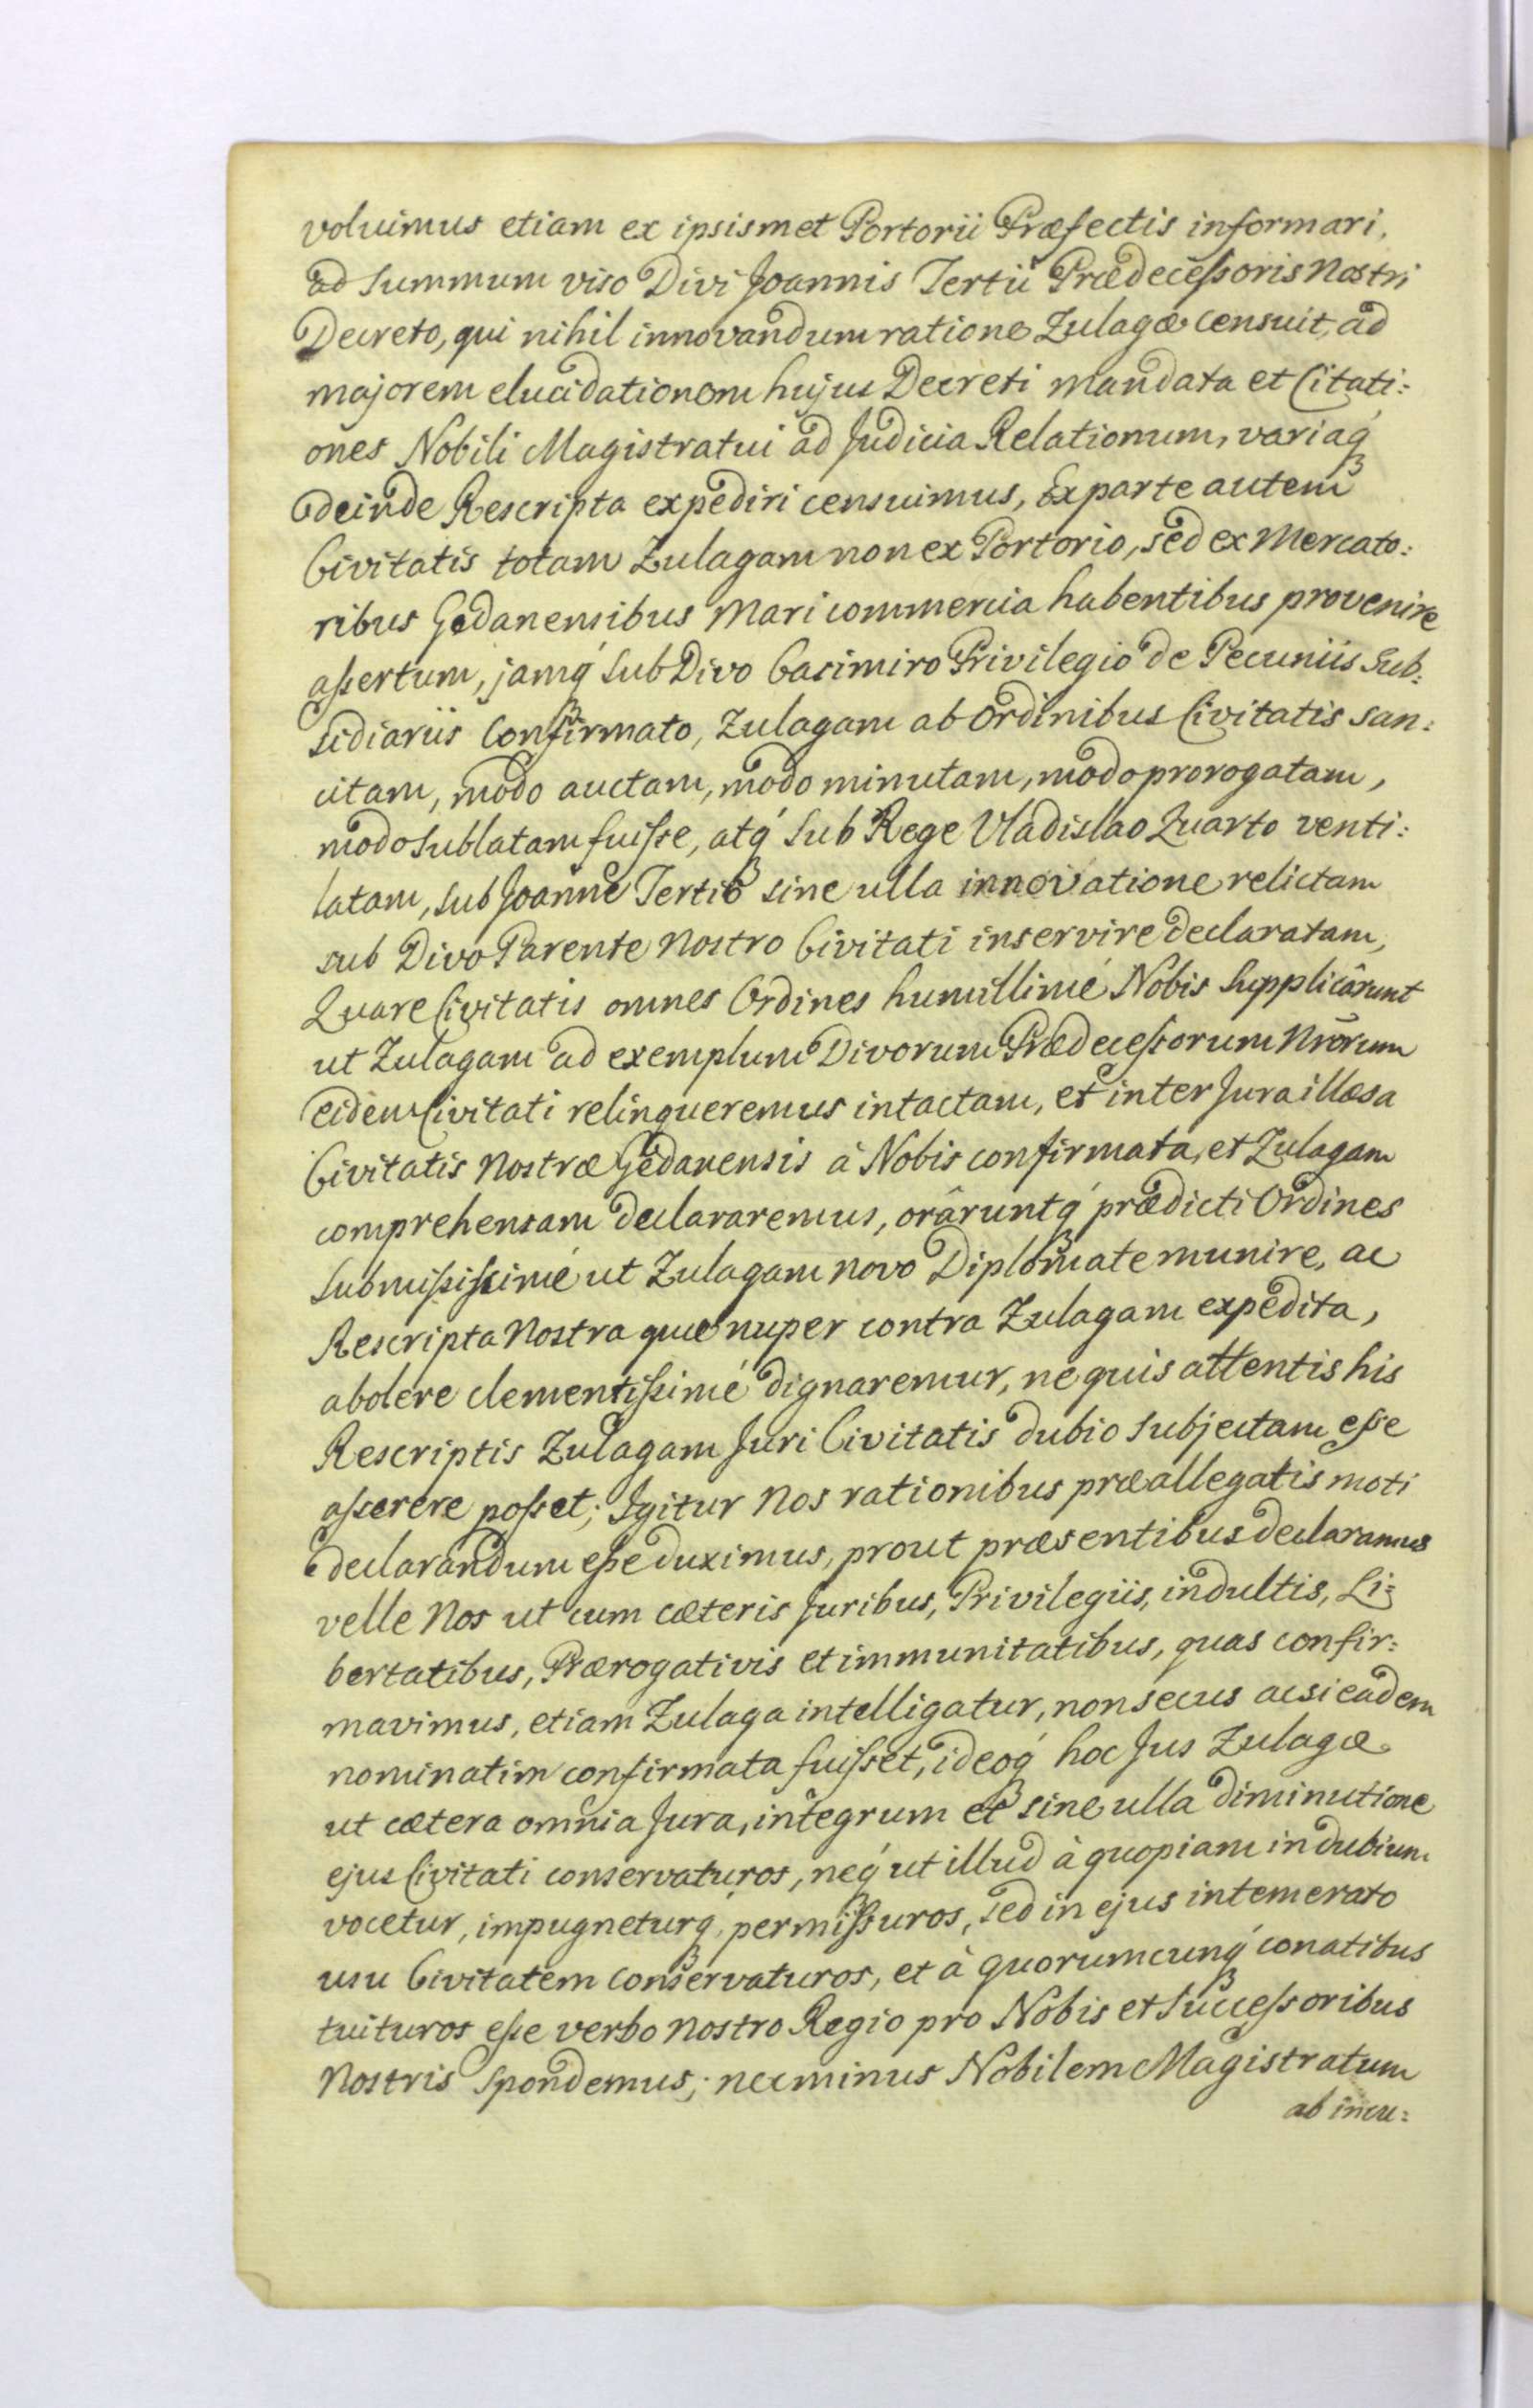 voluimus etiam ex ipsismet Portorii Præfectis informari,
ad summum viso Divi Joannis Tertii Prædecessoris Nostri
Decreto, qui nihil innovandum ratione Zulagæ censuit, ad
majorem elucidationem hujus Decreti mandata et Citati:
ones Nobili Magistratui ad Judicia Relationum, variaq́₃
deinde Rescripta expediri censuimus, Ex parte autem
Civitatis totam Zulagam non ex Portorio, sed ex Mercato:
ribus Gedanensibus Mari commercia habentibus provenire
assertum, jamq́₃ sub Divo Casimiro Privilegio de Pecuniis Sub:
sidiariis Confirmato, Zulagam ab Ordinibus Civitatis san:
citam, modo auctam, modo minutam, modo prorogatam,
modo sublatam fuisse, atq́₃ sub Rege Vladislao Quarto venti:
latam, sub Joanne Tertio sine ulla innovatione relictam
sub Divo Parente Nostro Civitati inservire declaratam,
Quare Civitatis omnes Ordines humillimé Nobis supplicârunt
ut Zulagam ad exemplum Divorum Prædecessorum Nrōrum
eidem Civitati relinqueremus intactam, et inter Jura illæsa
Civitatis Nostræ Gedanensis à Nobis confirmata, et Zulagam
comprehensam declararemus, orâruntq́₃ prædicti Ordines
submississimé ut Zulagam novo Diplomate munire, ac
Rescripta Nostra quæ nuper contra Zulagam expedita,
abolere clementissimé dignaremur, ne quis attentis his
Rescriptis Zulagam Juri Civitatis dubio subjectam esse
asserere posset; Igitur Nos rationibus præallegatis moti
declarandum esse duximus, prout præsentibus declaramus
velle Nos ut cum cæteris Juribus, Privilegiis, indultis, Li:
bertatibus, Prærogativis et immunitatibus, quas confir:
mavimus, etiam Zulaga intelligatur, non secus ac si eadem
nominatim confirmata fuisset, ideoq́₃ hoc Jus Zulagæ
ut cætera omnia Jura, integrum et sine ulla diminutione
ejus Civitati conservaturos, neq́₃ ut illud à quopiam in dubium
vocetur, impugneturq́₃ permissuros, sed in ejus intemerato
usu Civitatem conservaturos, et à quorumcunq́₃ conatibus
tuituros esse verbo Nostro Regio pro Nobis et Successoribus
Nostris spondemus; nec minus Nobilem Magistratum
ab incu: